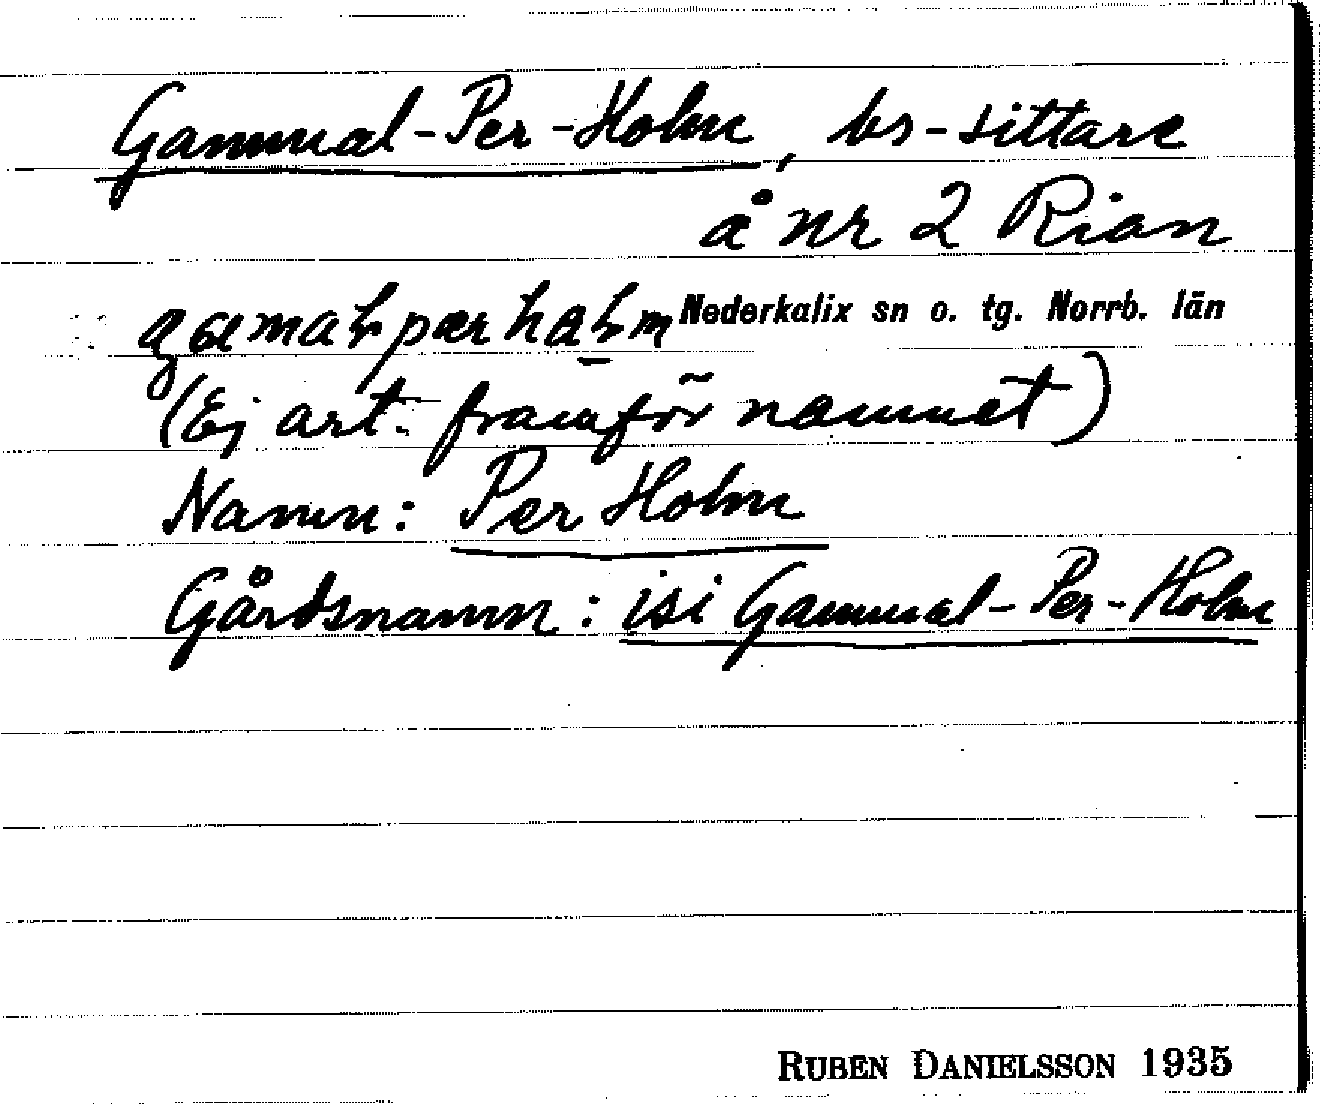 Gammal-Per-Holm, bs-sittare
å nr 2 Rian
Nederkalix sn o. tg. Norrb. län
(Ej art. framför namnet)
Namn: Per Holm
Gårdsnamn: isi Gammal-Per-Holm
RUBEN DANIELSSON 1935